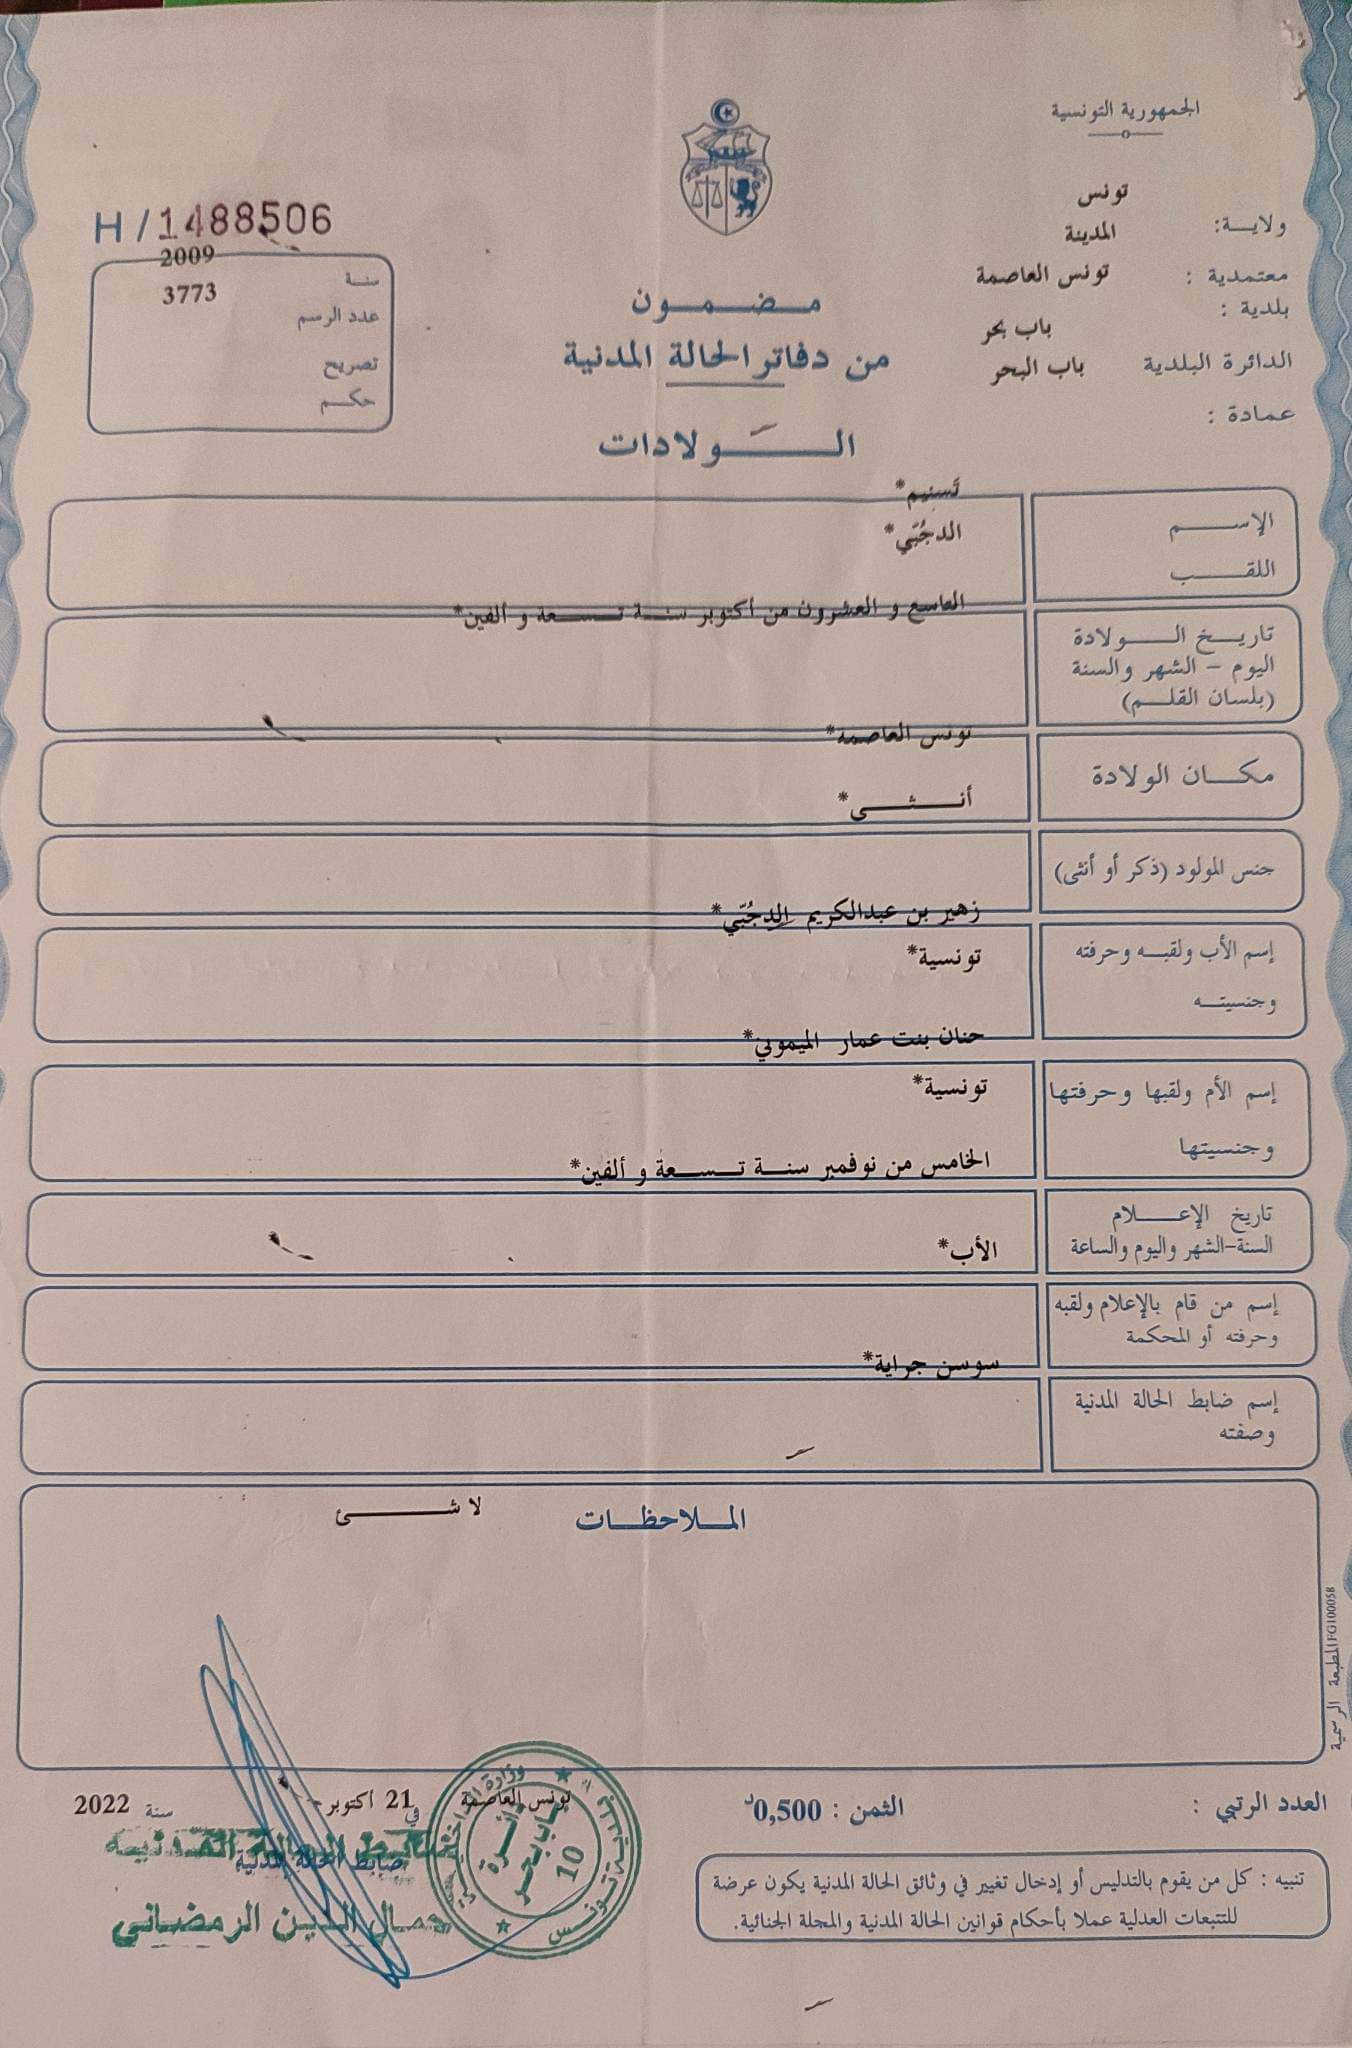 الجمهورية التونسية
ولايـــة: تونس
معتمدية : المدينة
بلدية : تونس العاصمة
الدائرة البلدية باب بحر
عمادة : باب البحر
H / 1488506
سنة 2009
عدد الرسم 3773
تصريح
حكم
مضمون
من دفاتر الحالة المدنية
الـولادات
الإســـم تَسنيم*
اللقـــب الدجُبّي*
تاريـخ الـــولادة
اليوم - الشهر والسنة
(بلسان القلـم)
التاسع و العشرون من أكتوبر سنـة تـسـعة و ألفين*
مكـــان الولادة تونس العاصمة*
جنس المولود (ذكر أو أنثى) أنـــثـــى*
إسم الأب ولقبـه وحرفته
وجنسيتـه
زهير بن عبدالكريم الدجُبّي*
تونسية*
إسم الأم ولقبها وحرفتها
وجنسيتها
حنان بنت عمار الميموني*
تونسية*
تاريخ الإعـــلام
السنة-الشهر واليوم والساعة
الخامس من نوفمبر سنـة تـسـعة و ألفين*
إسم من قام بالإعلام ولقبه
وحرفته أو المحكمة
الأب*
إسم ضابط الحالة المدنية
وصفته
سوسن جراية*
المـلاحظـات
لا شـــــئ
المطبعة الرسمية FG10005B
العدد الرتبي :
الثمن : 0,500د
تونس العاصمة في 21 أكتوبر سنة 2022
ضابط الحالة المدنية
ضابط الحالة المدنية
جمال الدين الرمضاني
وزارة الداخلية
بلدية تونس
دائرة
باب بحر
10
تنبيه : كل من يقوم بالتدليس أو إدخال تغيير في وثائق الحالة المدنية يكون عرضة
للتتبعات العدلية عملا بأحكام قوانين الحالة المدنية والمجلة الجنائية.